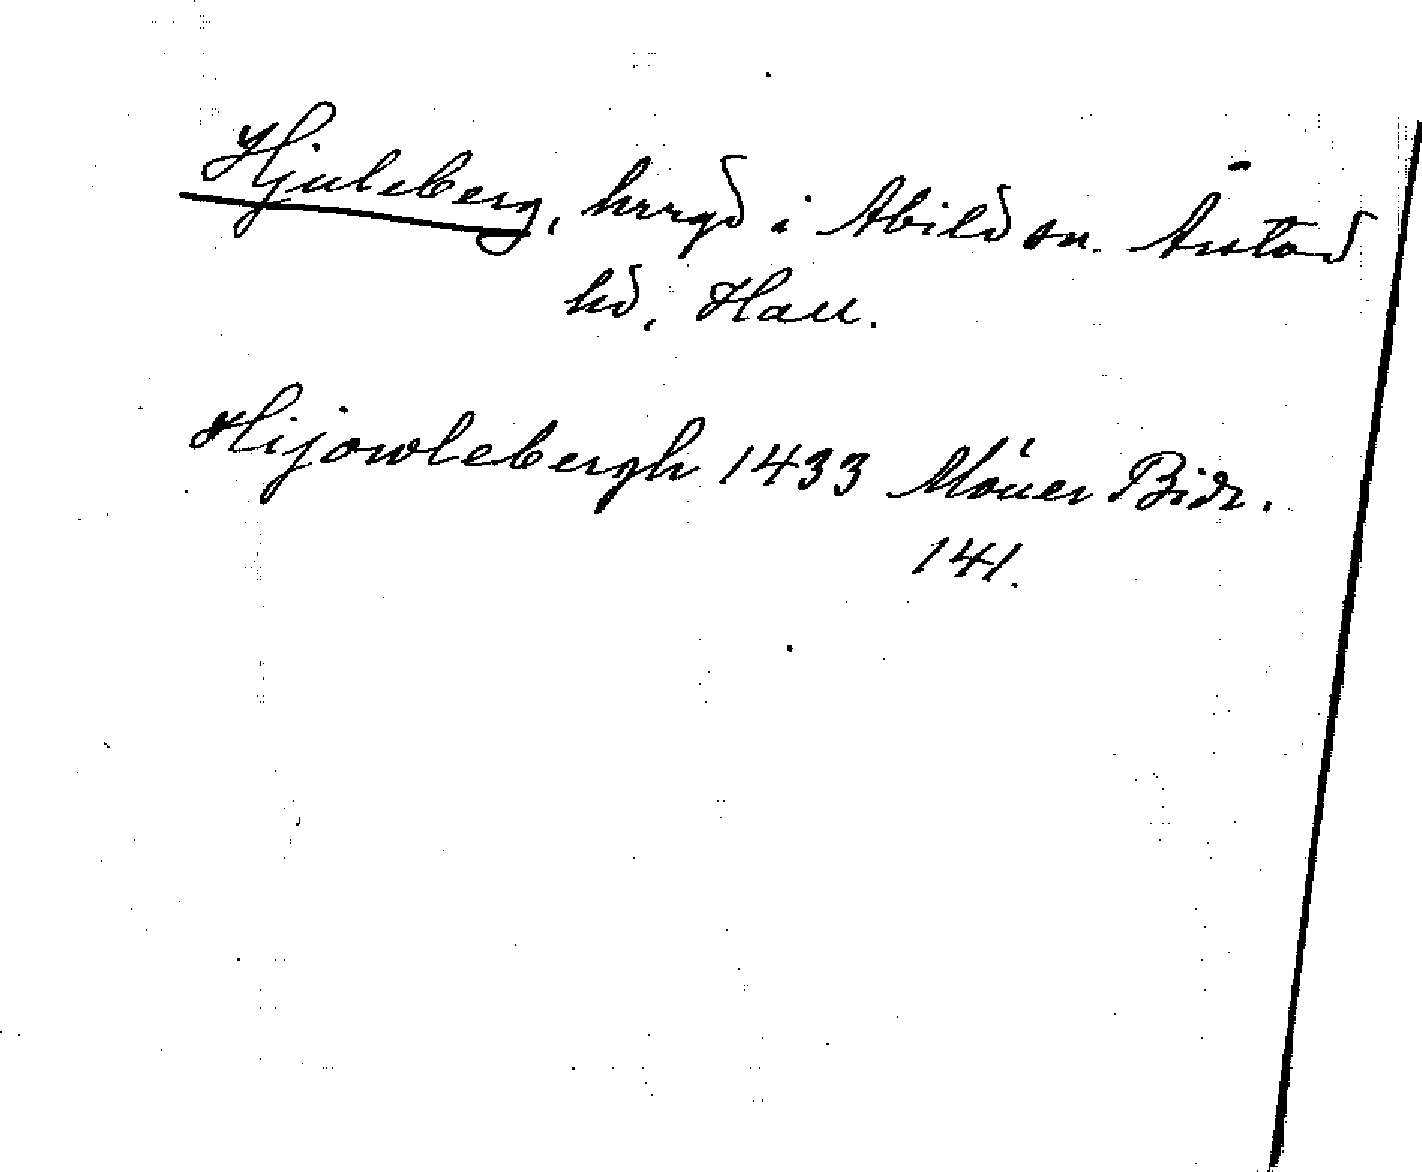 Hjuleberg, hrrgd i Abild sn. Årstad
hd, Hall.
Hijowlebergh 1433 Mouer Bidr.
141.